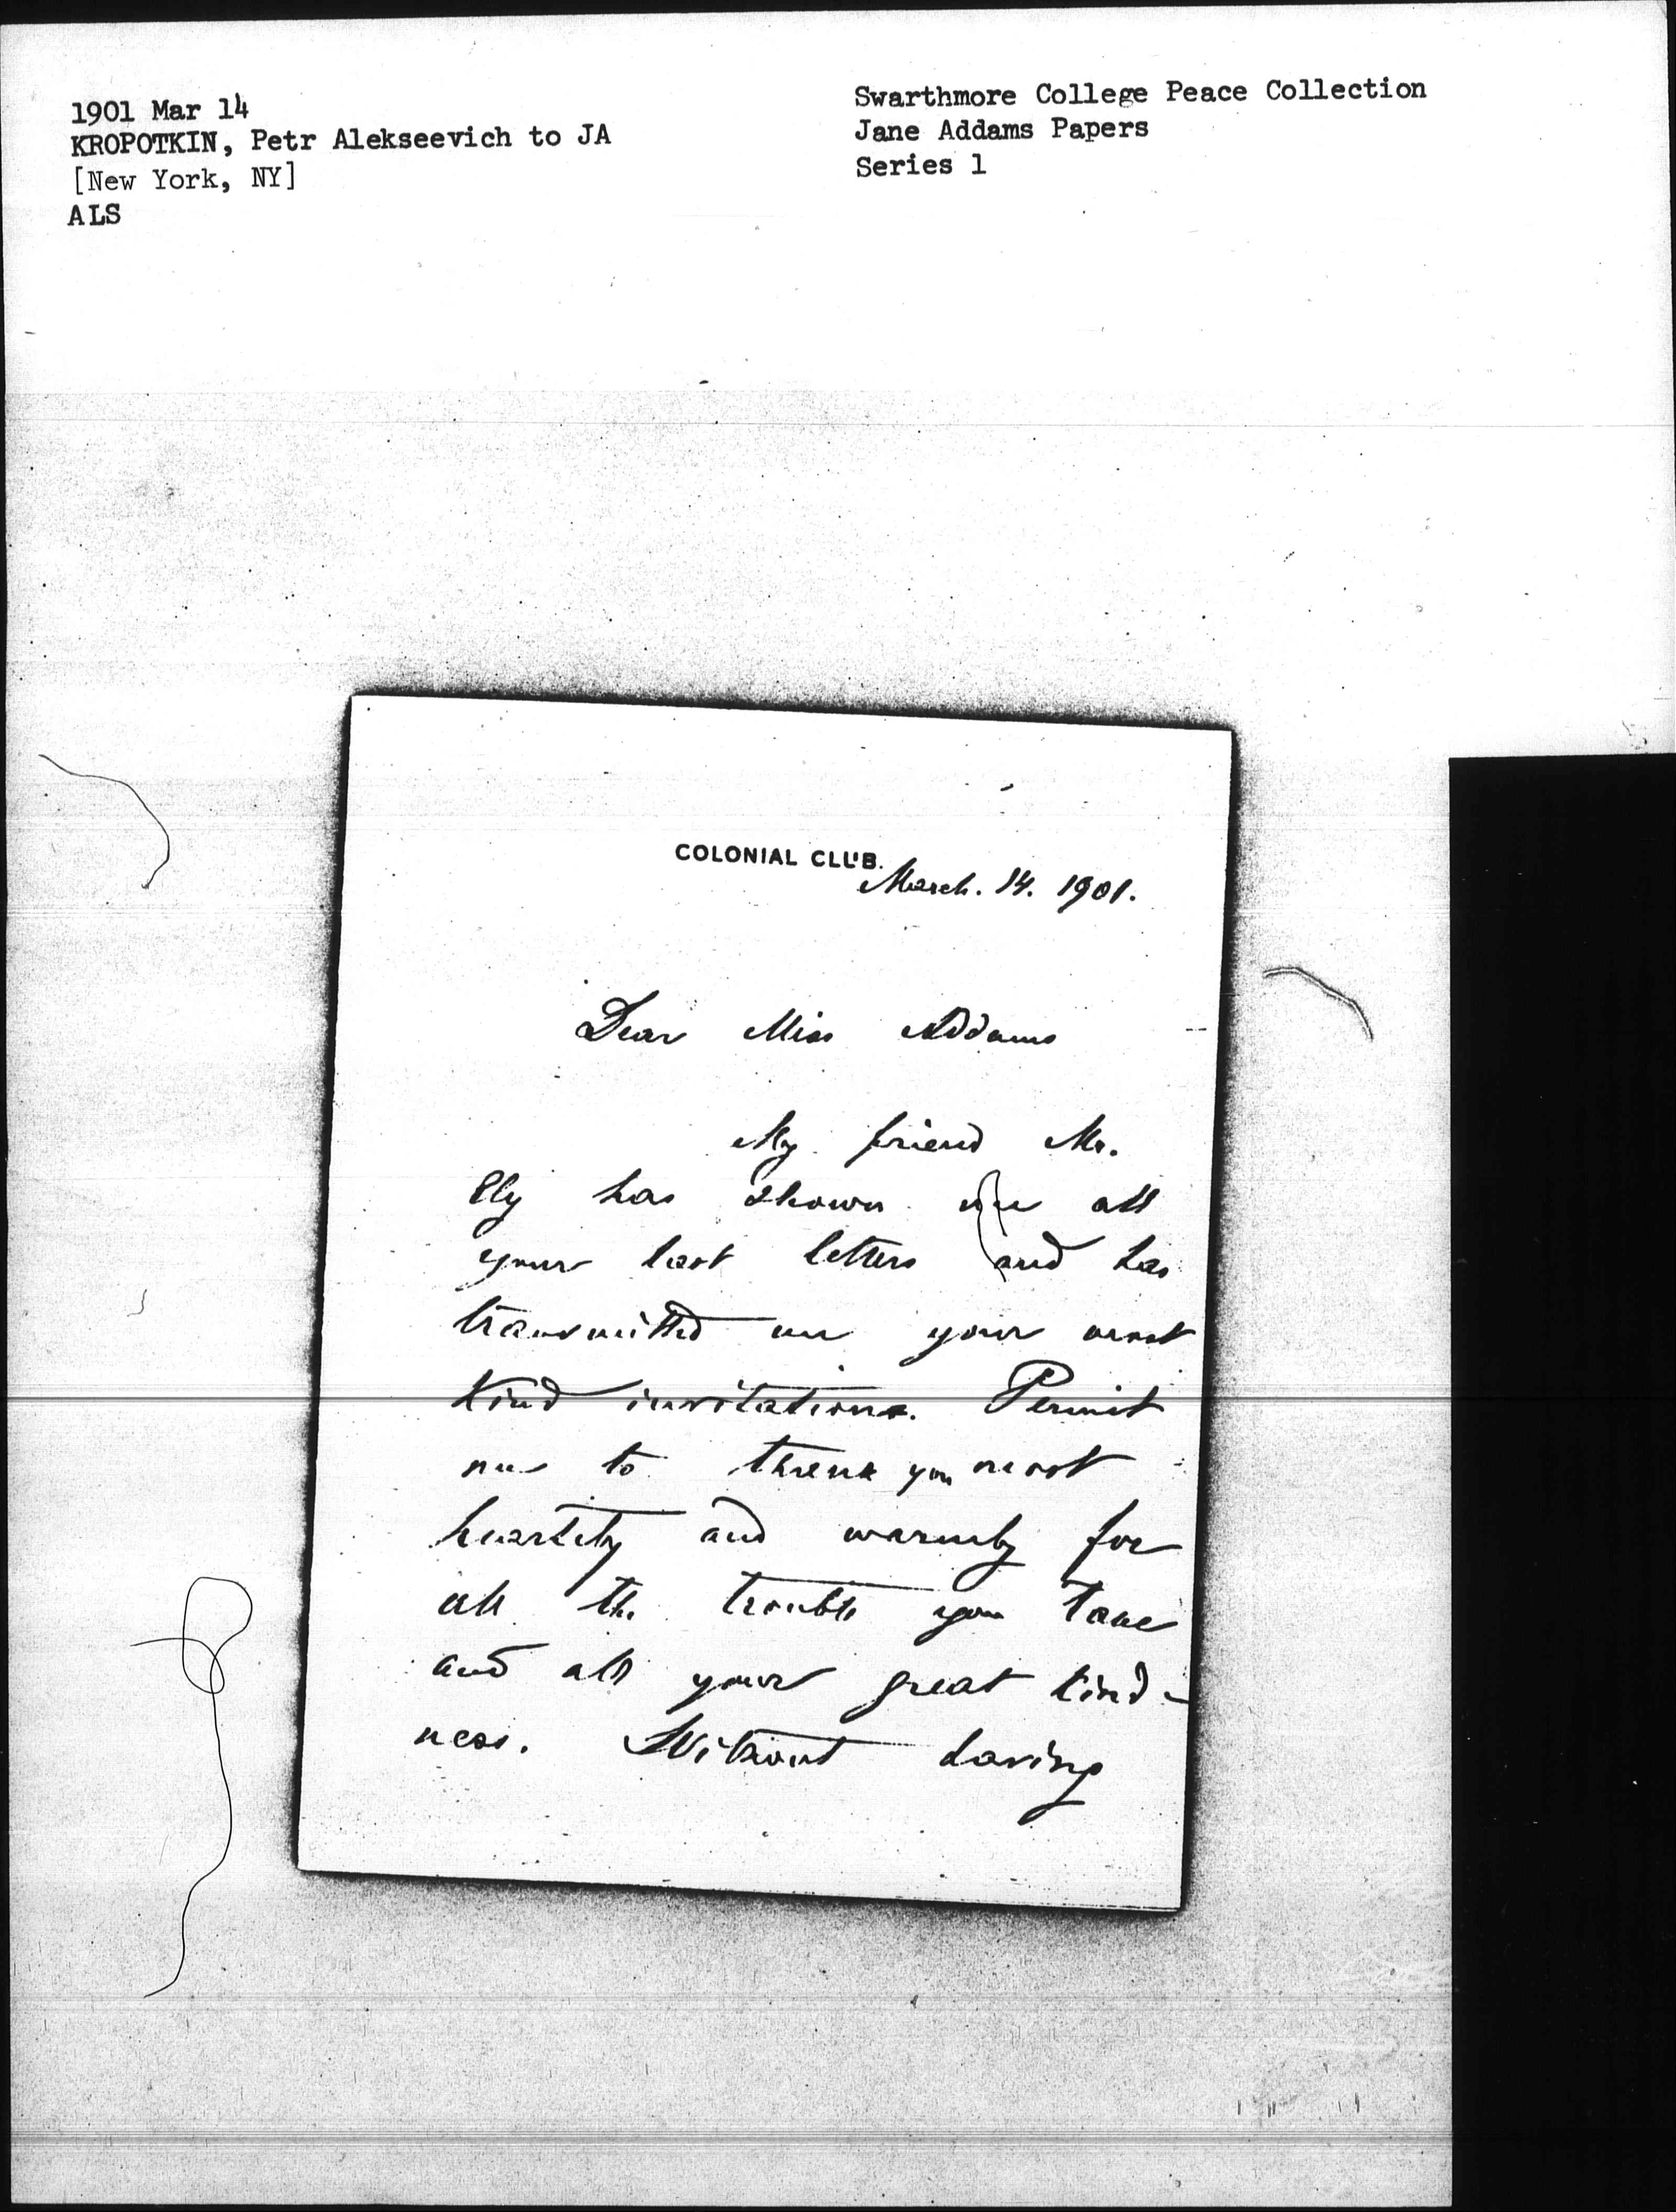 1901 Mar 14
KROPOTKIN, Petr Alekseevich to JA
[New York, NY]
ALS
Swarthmore College Peace Collection
Jane Addams Papers
Series 1
COLONIAL CLUB.
March. 14. 1901.
Dear Miss Addams
My friend Mr.
Ely has shown me all
your last letters and has
transmitted me your most
kind invitations. Permit
me to thank you most
heartily and warmly for
all the trouble you take
and all your great kind-
ness. Without having